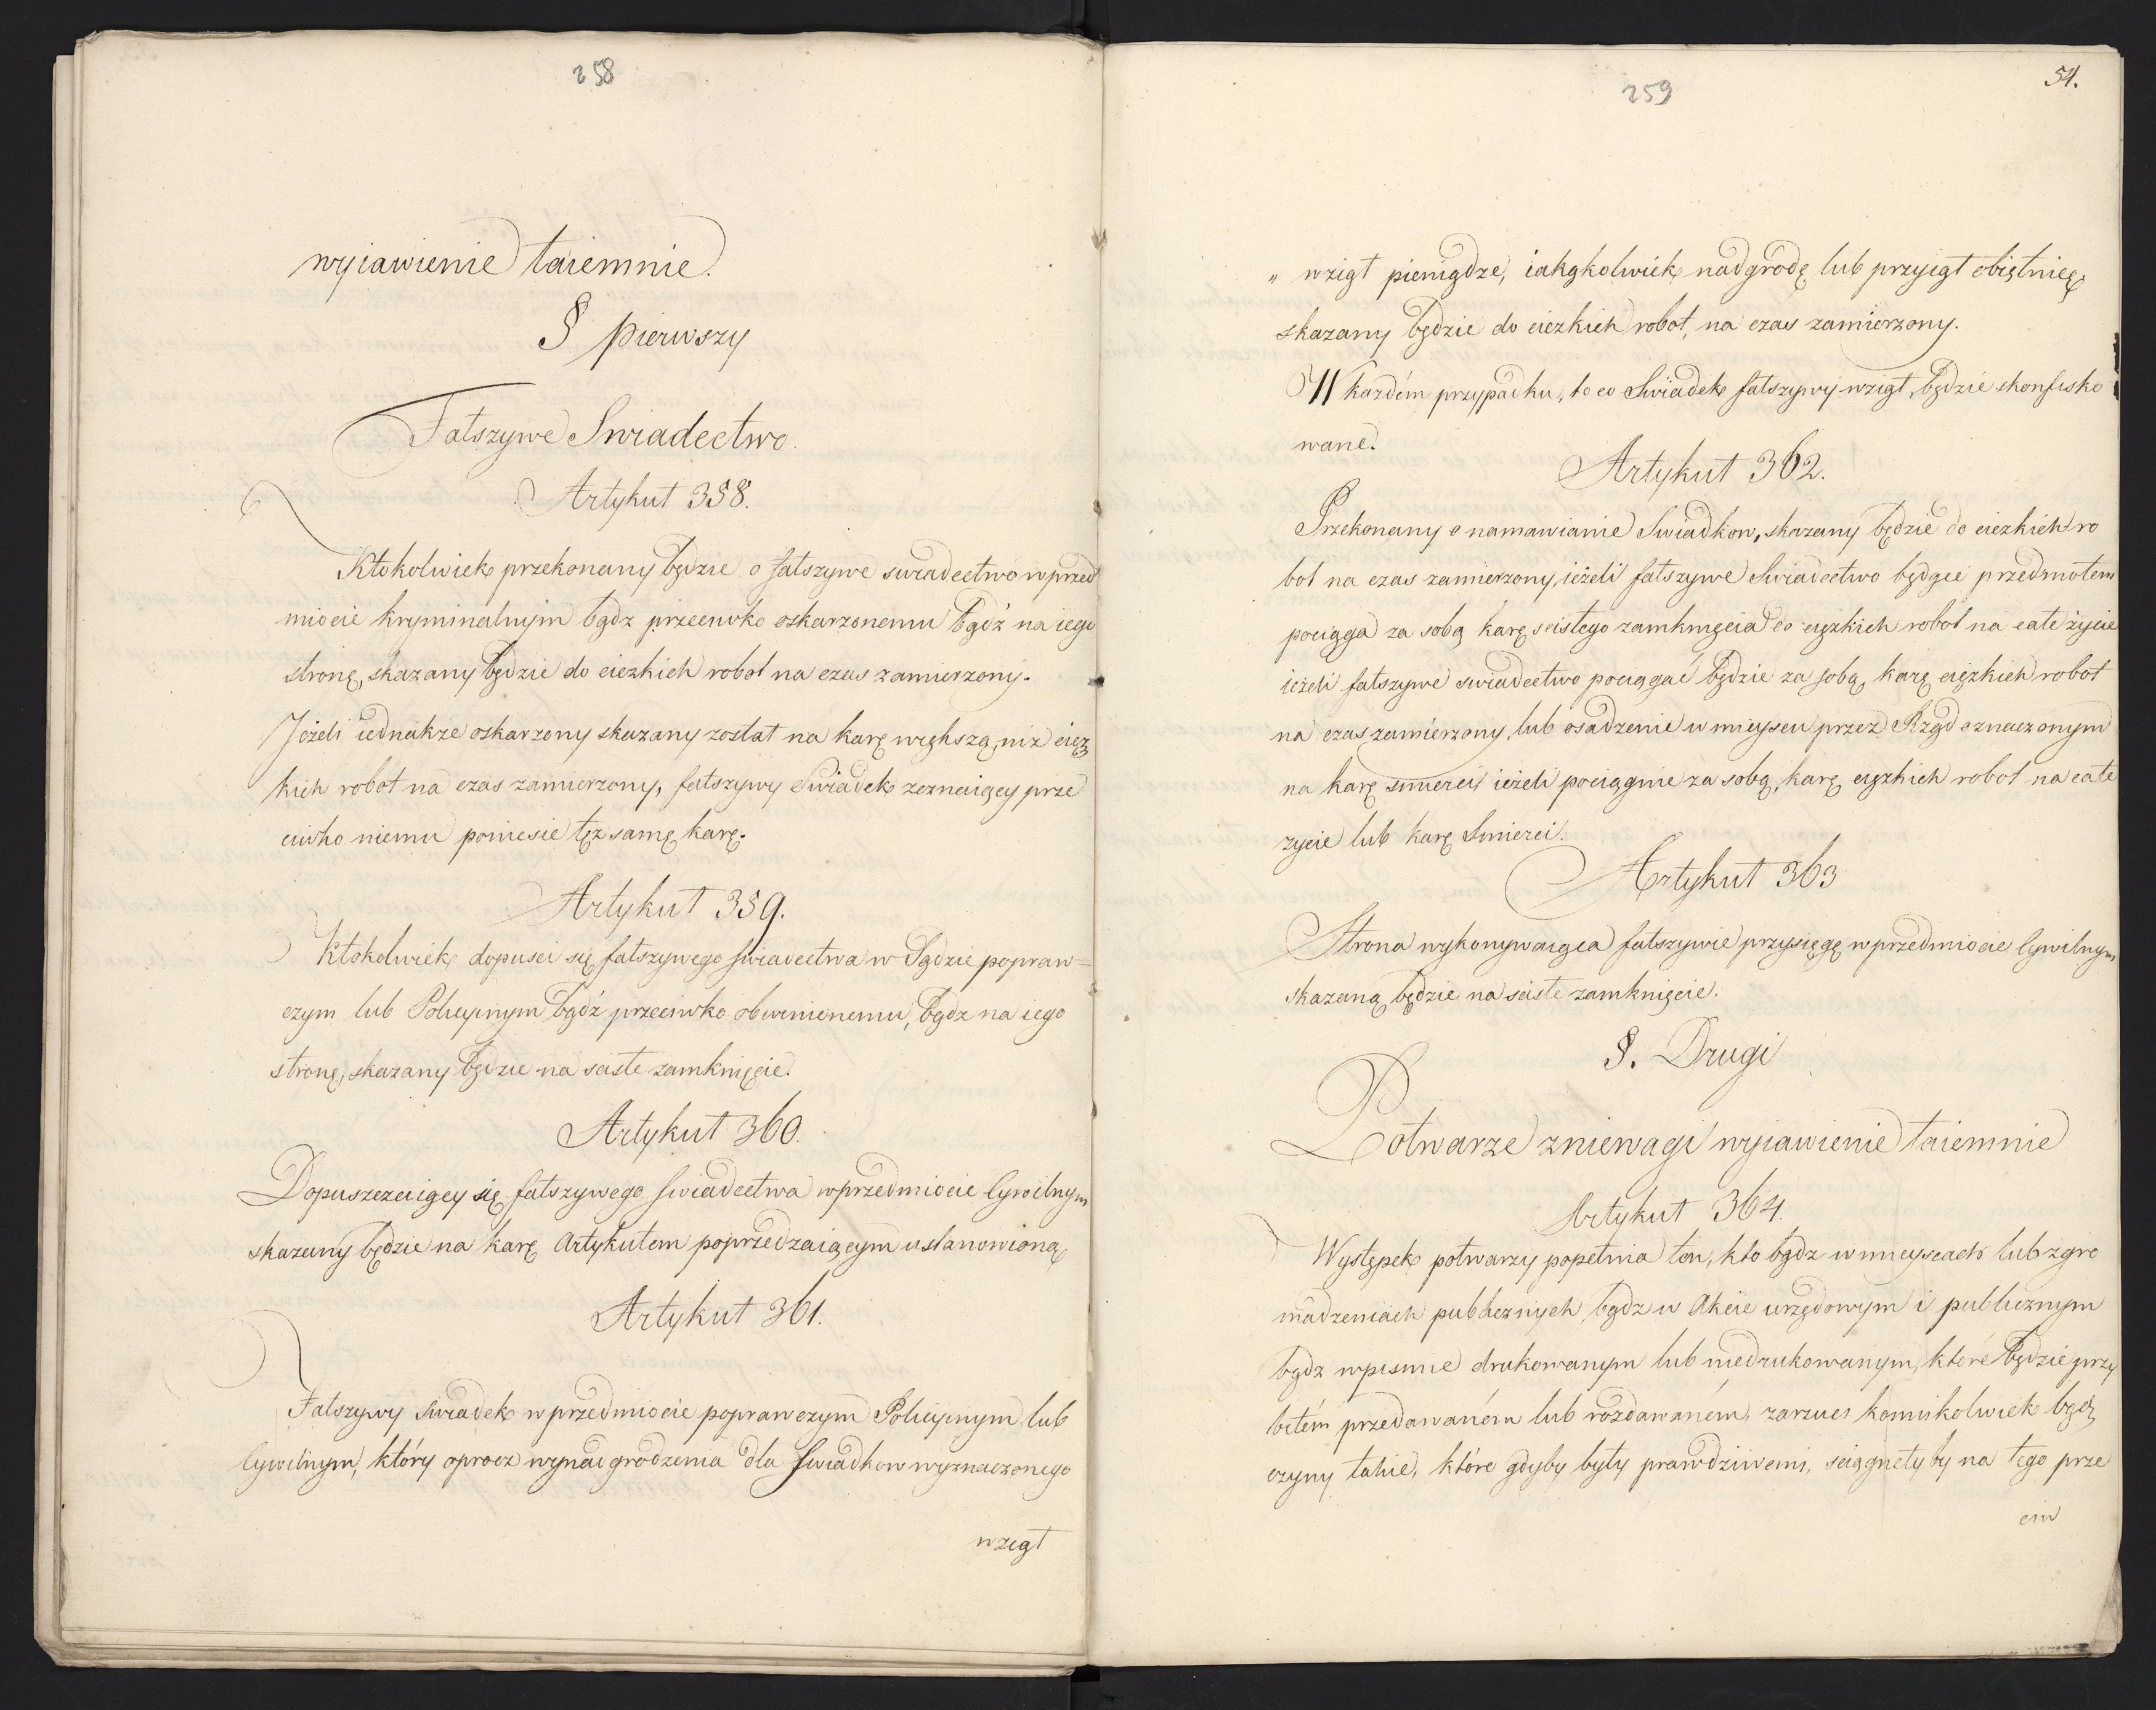 258
wyiawienie taiemnic.
§ pierwszy
Fałszywe Swiadectwo.
Artykuł 358.
Ktokolwiek przekonany będzie o fałszywe swiadectwo w przed
miocie kryminalnym bądz przeciwko oskarzonemu bądź na iego
stronę, skazany będzie do cięzkich robot na czas zamierzony.
Jeżeli iednakze oskarzony skazany został na karę większą, niz cięz
kich robot na czas zamierzony, fałszywy Swiadek zeznaiący prze
ciwko niemu poniesie tęz samę karę.
Artykuł 359.
Ktokolwiek dopusci się fałszywego swiadectwa w Sądzie popraw=
czym lub Policyinym bądź przeciwko obwinionemu, bądz na iego
stronę, skazany będzie na scisłe zamknięcie.
Artykuł 360.
Dopuszczaiący się fałszywego swiadectwa w przedmiocie Cywilnym
skazany będzie na karę Artykułem poprzedzaiącym ustanowioną
Artykuł 361.
Fałszywy swiadek w przedmiocie poprawczym Policyinym lub
Cywilnym, który oprocz wynadgrodzenia dla Swiadkow wyznaczonego
wziął
259
54.
" wziął pieniądze, iakąkolwiek nadgrodę lub przyiął obiętnicę,
skazany będzie do ciezkich robot, na czas zamierzony.
W każdém przypadku, to co Swiadek fałszywy wziął, będzie skonfisko
wane.
Artykuł 362.
Przekonany o namawianie Swiadkow, skazany będzie do ciezkich ro
bot na czas zamierzony, ieżeli fałszywe Swiadectwo będące przedmotem
pociąga za sobą karę scisłego zamknięcia do cięzkich robot na całe życie
ieżeli fałszywe swiadectwo pociągać będzie za sobą, karę cięzkich robot
na czas zamierzony, lub osadzenie w mieyscu przez Rząd oznaczonym
na karę smierci ieżeli pociągnie za sobą, karę cięzkich robot na całe
zycie lub karę Smierci.
Artykuł 363
Strona wykonywaiąca fałszywie przysięgę w przedmiocie Cywilnym
skazaną będzie na scisłe zamknięcie.
§. Drugi
Potwarze zniewagi wyiawienie taiemnic
Artykuł 364.
Występek potwarzy popełnia ten, kto bądz w mieyscach lub zgro
madzeniach publicznych, bądz w Akcie urzędowym i publicznym
bądz w pismie drukowanym lub niedrukowanym, które będzie przy
bitém przedawaném lub rozdawaném, zarzuci komukolwiek bądz
czyny takie, które gdyby były prawdziwemi, sciągnęły by na tego prze
ciw